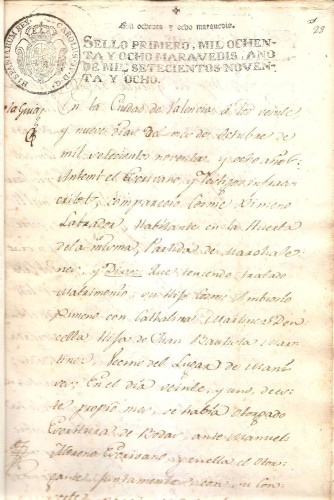 28
Mil ochenta y ocho maravedis.
SELLO PRIMERO, MIL OCHEN-
TA Y OCHO MARAVEDIS, AÑO
DE MIL SETECIENTOS NOVEN-
TA Y OCHO.
HISPANIARUM REX CAROLUS IV D G
En la Ciudad de Valencia á los veinte
y nueve dias del mes de Octubre de
mil setecientos noventa y ocho años:
Antemi el Escrivano, y testigos infra-
critos, comparecio Cosme Ximeno
Labrador, Habitante en la Huerta
dela misma, Partida de
y Dixo: Que teniendo tratado
Matrimonio, su Hijo Cosme Ambrosio
Ximeno con Cathalina Martinez Don-
cella Hija de Juan Bautista Mar-
tinez, Vecino del Lugar de
En el dia veinte, y uno, de es-
te propio mes, se había otorgado
Escritura de Bodas, ante Manuel
Escrivano, y en ella el Otor-
gante juntamente con su Con-